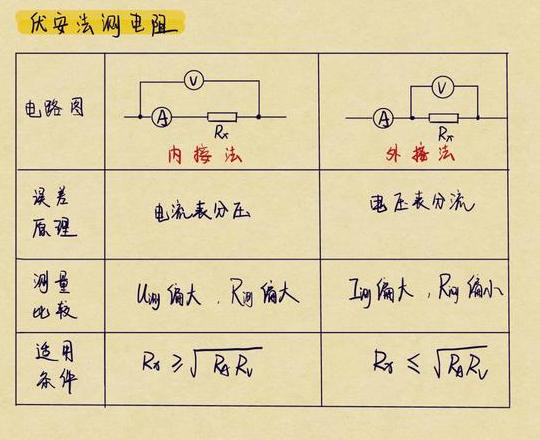 伏安法测电阻
电路图
V
A
Rx
内接法
V
A
Rx
外接法
误差
原理
电流表分压
电压表分流
测量
比较
U测偏大，R测偏大
I测偏大，R测偏小
适用
条件
Rx ≥ √RARV
Rx ≤ √RARV